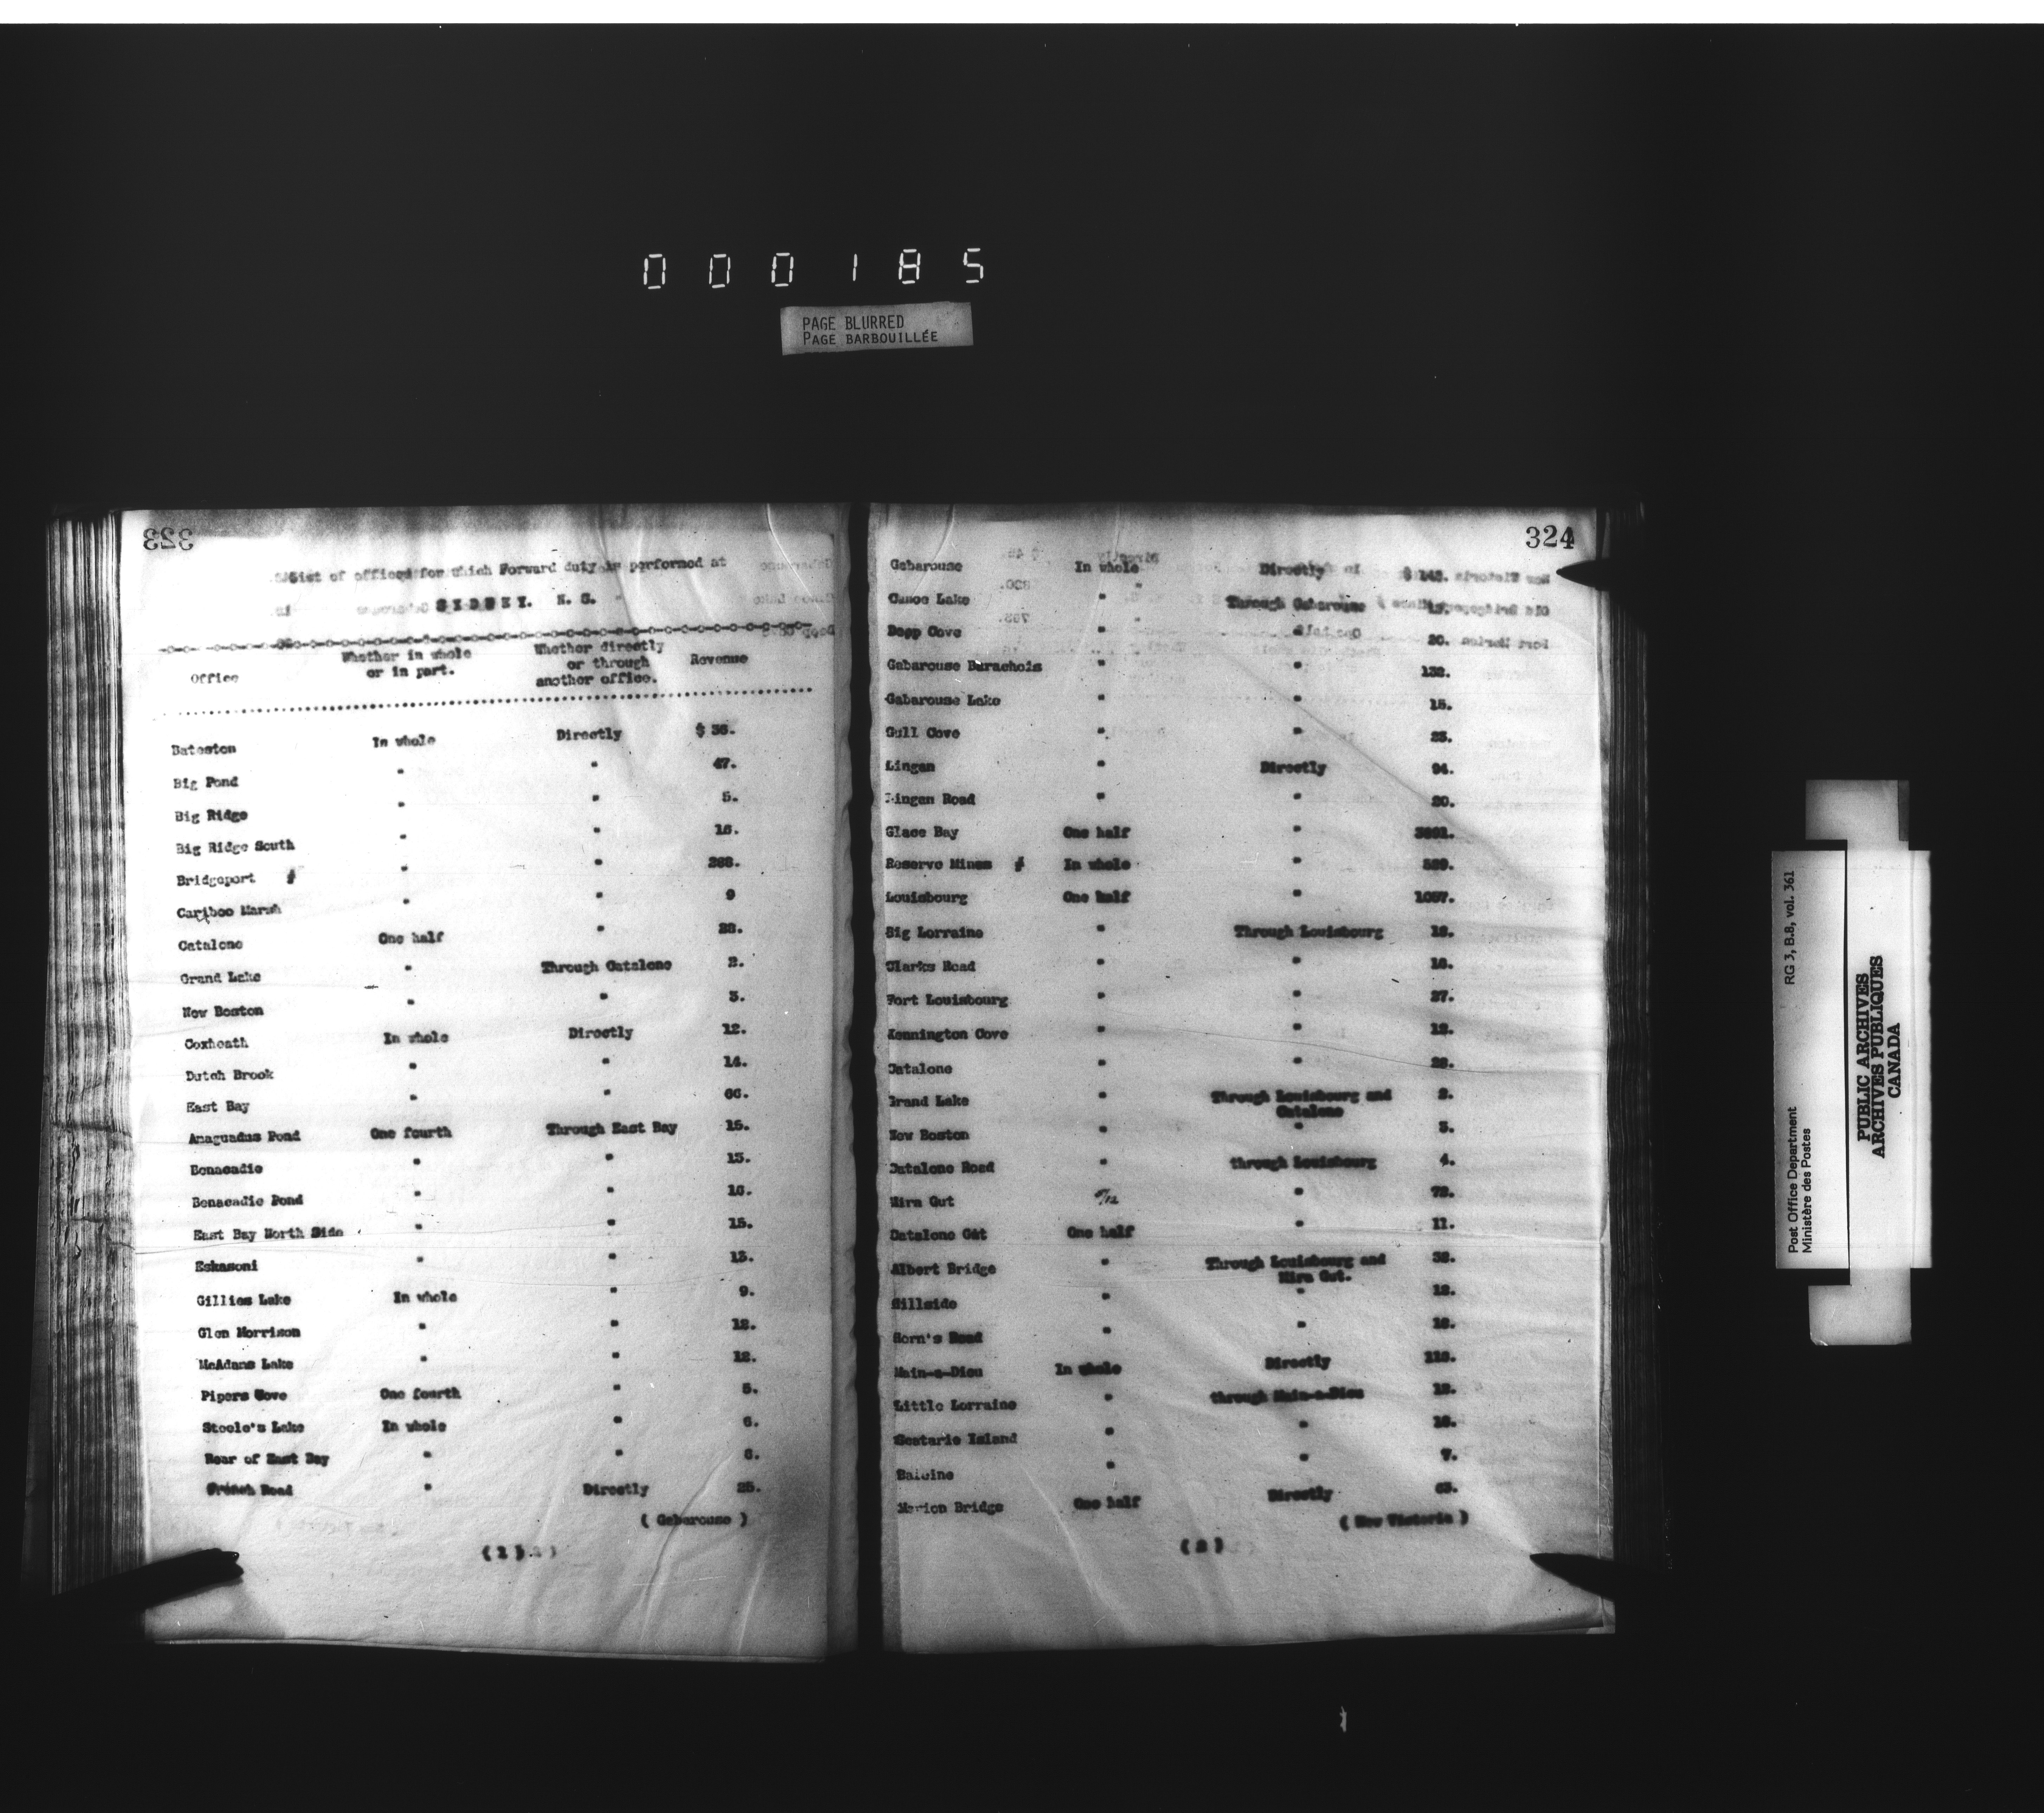 000185
PAGE BLURRED
PAGE BARBOUILLÉE
323
List of offices for which Forward duty is performed at
SYDNEY. N. S.
Office Whether in whole or in part. Whether directly or through another office. Revenue
Bateston In whole Directly $ 36.
Big Pond " " 47.
Big Ridge " " 5.
Big Ridge South " " 16.
Bridgeport " " 288.
Cariboo Marsh " " 9
Catalone One half " 28.
Grand Lake " Through Catalone 2.
New Boston " " 3.
Coxheath In whole Directly 12.
Dutch Brook " " 14.
East Bay " " 66.
Amaguadus Pond One fourth Through East Bay 15.
Benacadie " " 13.
Benacadie Pond " " 16.
East Bay North Side " " 15.
Eskasoni " " 13.
Gillies Lake In whole " 9.
Glen Morrison " " 12.
McAdams Lake " " 12.
Pipers Cove One fourth " 5.
Steele's Lake In whole " 6.
Rear of East Bay " " 6.
French Road " Directly 25.
( Gabarouse )
(1)
324
Gabarouse In whole Directly $ 143.
Canoe Lake " Through Gabarouse
Deep Cove " " 20.
Gabarouse Barachois " " 132.
Gabarouse Lake " " 15.
Gull Cove " " 23.
Lingan " Directly 94.
Lingan Road " " 20.
Glace Bay One half "
Reserve Mines In whole "
Louisbourg One half " 1057.
Big Lorraine " Through Louisbourg 12.
Clarks Road " " 16.
Fort Louisbourg " " 27.
Kennington Cove " " 12.
Catalone " " 28.
Grand Lake " Through Louisbourg and Catalone 2.
New Boston " " 3.
Catalone Road " through Louisbourg 4.
Mira Gut "
Catalone Gut One half " 11.
Albert Bridge " Through Louisbourg and Mira Gut. 32.
Hillside " " 12.
Horn's Road " "
Main-a-Dieu In whole Directly
Little Lorraine " through Main-a-Dieu 12.
Scatarie Island " "
Baleine " " 7.
Marion Bridge One half Directly 63.
( New Victoria )
(2)
Post Office Department
Ministère des Postes
RG 3, B.8, vol. 361
PUBLIC ARCHIVES
ARCHIVES PUBLIQUES
CANADA